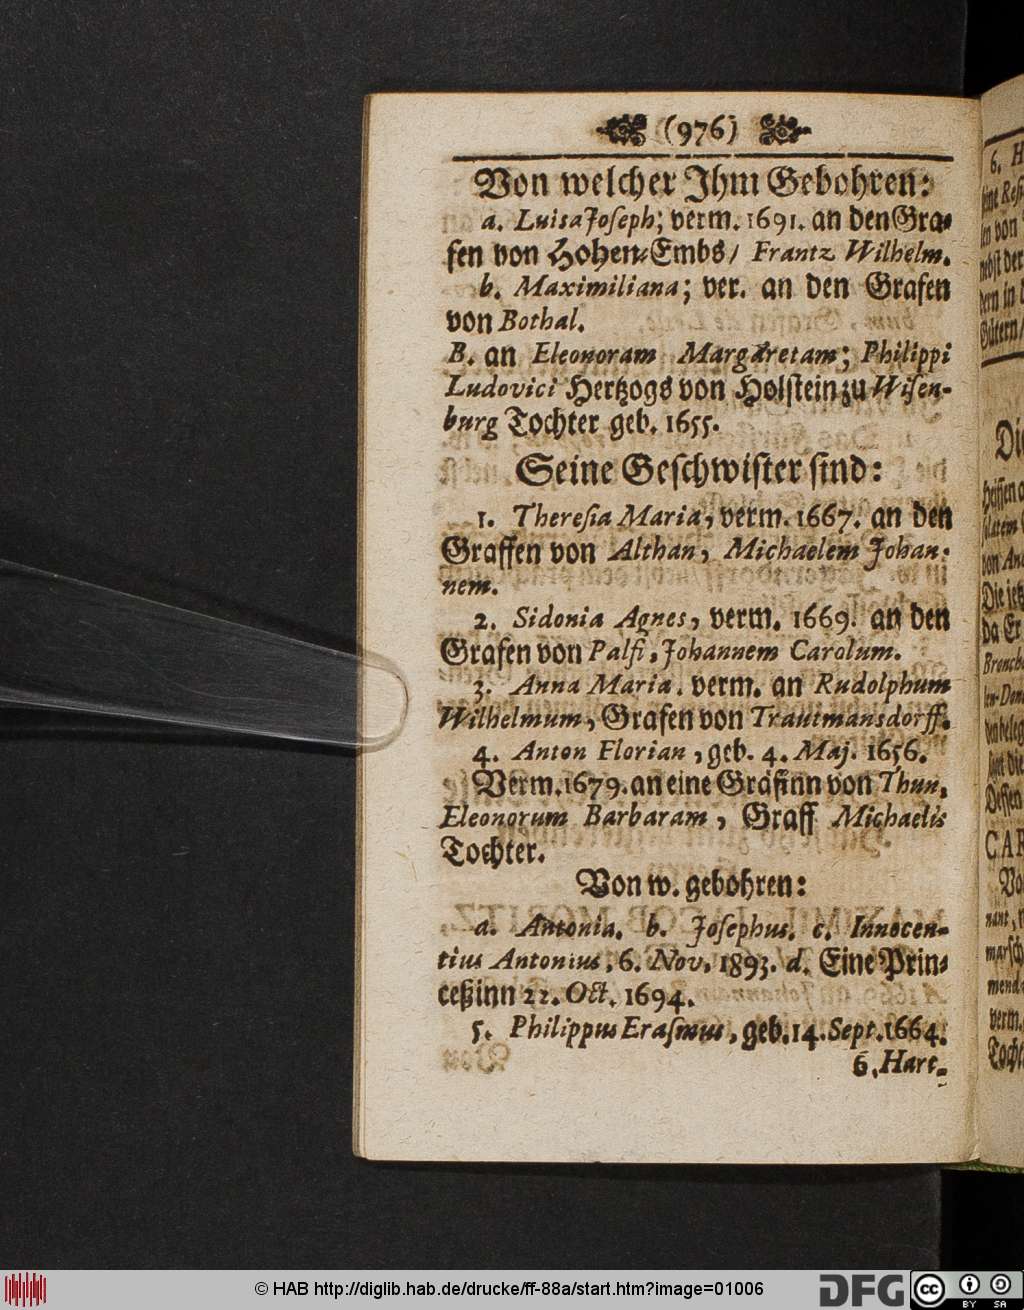 (976)
Von welcher Ihm Gebohren:
a. Luisa Joseph; verm. 1691. an den Gra-
fen von Hohen-Embs/ Frantz Wilhelm.
b. Maximiliana; ver. an den Grafen
von Bothal.
B. an Eleonoram Margaretam; Philippi
Ludovici Hertzogs von Holstein zu Wisen-
burg Tochter geb. 1655.
Seine Geschwister sind:
1. Theresia Maria, verm. 1667. an den
Graffen von Althan, Michaelem Johan-
nem.
2. Sidonia Agnes, verm. 1669. an den
Grafen von Palfi, Johannem Carolum.
3. Anna Maria. verm. an Rudolphum
Wilhelmum, Grafen von Trautmansdorff.
4. Anton Florian, geb. 4. Maj. 1656.
Verm. 1679. an eine Gräfinn von Thun,
Eleonorum Barbaram, Graff Michaelis
Tochter.
Von w. gebohren:
a. Antonia. b. Josephus. c. Innocen-
tius Antonius. 6. Nov. 1893. d. Eine Prin-
ceßinn 22. Oct. 1694.
5. Philippus Erasmus, geb. 14. Sept. 1664.
6. Hart-
6. H
von
Die
CAR
© HAB http://diglib.hab.de/drucke/ff-88a/start.htm?image=01006
DFG
cc BY SA